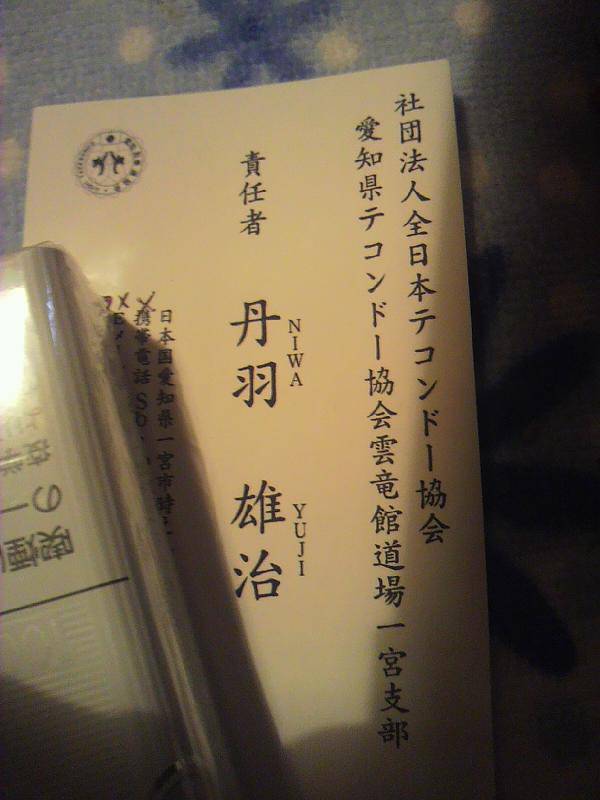 社団法人全日本テコンドー協会
愛知県テコンドー協会雲竜館道場一宮支部
責任者
丹羽 雄治
NIWA YUJI
日本国愛知県一宮市時
携帯電話 So
Eメ
喫煙
の一